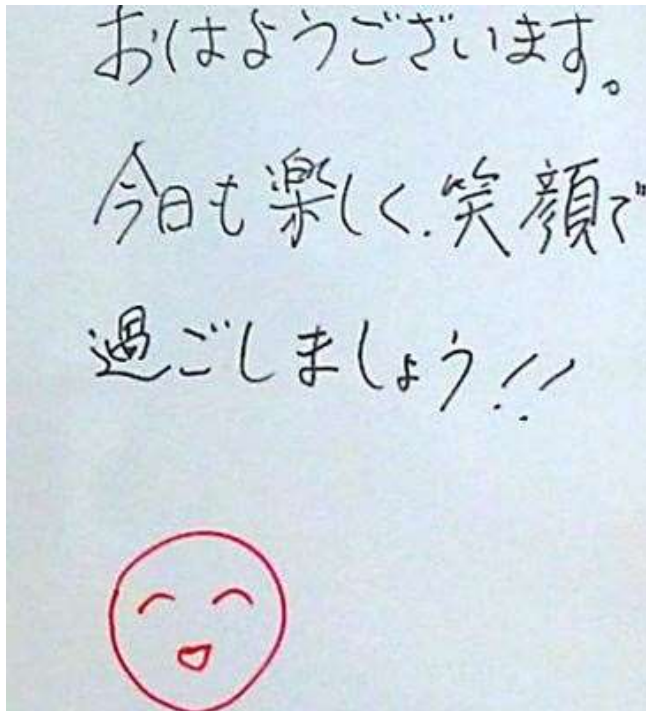 おはようございます。
今日も楽しく、笑顔で
過ごしましょう!!